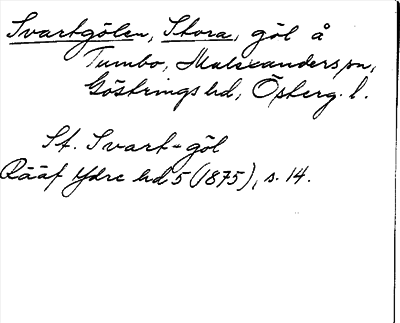 Svartgölen, Stora, göl å
Tumbo, Malexanders sn,
Göstrings hd, Österg. l.
St. Svart-göl
Rääf Ydre hd 5 (1875), s. 14.